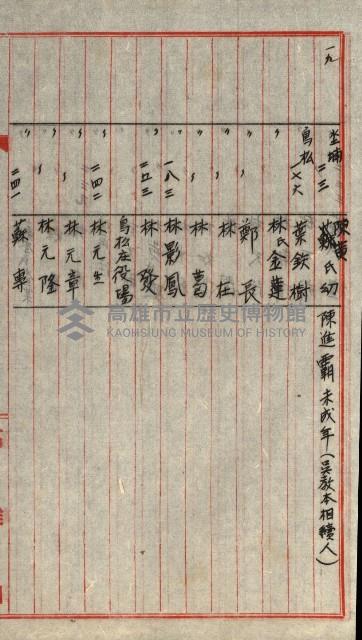 一九
埤埔 二三 陳黃蘇氏幼 陳進霸 未成年(吳教本相續人)
鳥松 一七六 葉鉄樹
〃 林氏金蓮
〃 〃 鄭長
〃 〃 林在
〃 〃 林萬
〃 一八三 林影鳳
〃 二五三 林發
鳥松庄役場
〃 二四二 林元生
〃 〃 林元章
〃 〃 林元隆
〃 二四一 蘇專
高雄市立歷史博物館
KAOHSIUNG MUSEUM OF HISTORY